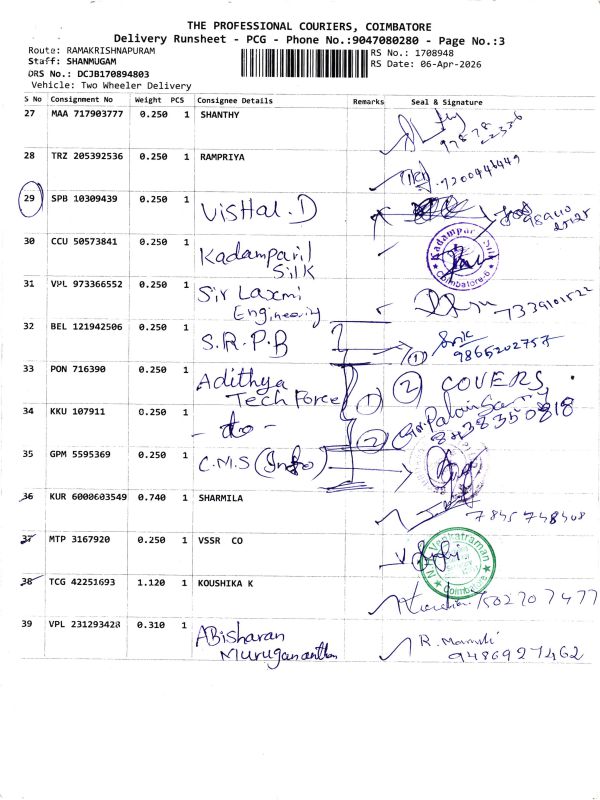 THE PROFESSIONAL COURIERS, COIMBATORE
Delivery Runsheet - PCG - Phone No.:9047080280 - Page No.:3
Route: RAMAKRISHNAPURAM
Staff: SHANMUGAM
DRS No.: DCJB170894803
Vehicle: Two Wheeler Delivery
RS No.: 1708948
RS Date: 06-Apr-2026
S No Consignment No Weight PCS Consignee Details Remarks Seal & Signature
27 MAA 717903777 0.250 1 SHANTHY
28 TRZ 205392536 0.250 1 RAMPRIYA
7200446449
29 SPB 10309439 0.250 1 VISHAL.D
30 CCU 50573841 0.250 1 Kadamparil
Silk
Kadampari Silk
Coimbatore-6
31 VPL 973366552 0.250 1 Sir Laxmi
Engineering
7339101522
32 BEL 121942506 0.250 1 S.R.P.B
1 9865202757
33 PON 716390 0.250 1 Adithya
Tech Force 1 2 COVERS
34 KKU 107911 0.250 1 - do - 2
8438350818
35 GPM 5595369 0.250 1 C.M.S (Info)
36 KUR 6000603549 0.740 1 SHARMILA
7845748408
37 MTP 3167920 0.250 1 VSSR CO
Venkatraman
Coimbatore
38 TCG 42251693 1.120 1 KOUSHIKA K
7502707477
39 VPL 231293428 0.310 1 ABisharan
Muruganantham
9486927462